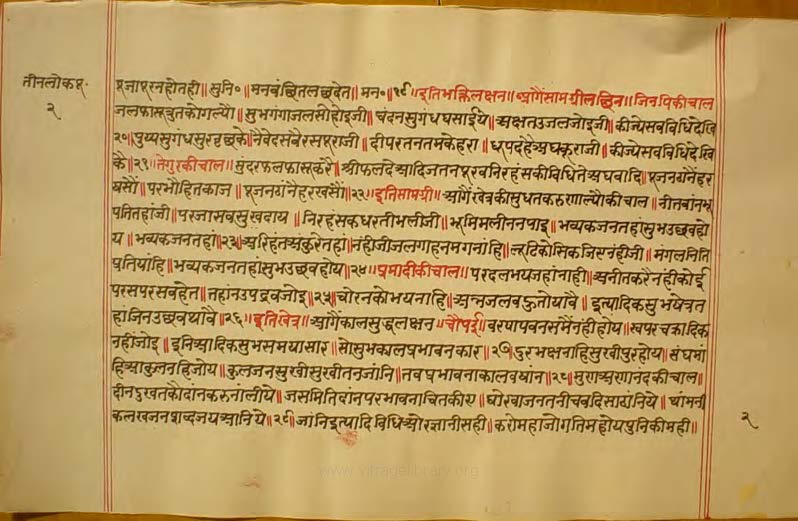 तीनलोकपू॰
२
पूजापूरनहोतही॥ सुनि॰॥ मनबंछितलछदेत॥ मन॰॥१९॥इतिभक्तिलक्षन॥आगैंसामग्रीलछिन॥जिनपिकीचाल
जलफासूबुतकोगल्यौ॥ सुभगंगाजलसीहोइजी॥ चंदनसुगंधघसाईये॥अक्षतउजलजोइजी॥ कीज्येसवविधिदेखि
२०॥पुष्यसुगंधसुरवृछके॥नैवेदसबैरसपूराजी॥ दीपरतनतमकेहरा॥ धूपदहैअघकूराजी॥ कीज्येसवविधिदेखि
कै॥२१॥तेगुरकीचाल॥ सुंदरफलफासूकरै॥ श्रीफलदेआदिजतनपूरवनिरहंसकीविधितेअघवादि॥ पूजन
यसौं॥परभौहितकाज॥ २२॥इतिसामग्री॥आगैंखेत्रकीसुधतकरुणाल्यौकीचाल॥ नीतवांनभू
पतितहांजी॥परजासवसुखदाय॥ निरहंसकधरतीभलीजी॥ भूमिमलीननपाइ॥ भव्यकजनतहांसुभउछवहो
य॥ भव्यकजनतहां॥२३॥अरिहंतअंकुरेतहां॥नंहीजीजलगाहनमगनांहि॥ जिएनंहीजी॥ मंगलनिति
प्रतियांहि॥भव्यकजनतहांसुभउछवहोय॥२४॥प्रमादीकीचाल॥ परदलभयजहांनाही॥अनीतकरैनहीकोई
परसपरसवहेत॥तहांनउपद्रवजोइ॥२५॥चोरनकोभयनाहि॥अन्नजलबहुतोयावै॥ इत्यादिकसुभषेत्रत
हांजिनउछवथांवै॥२६॥इतिखेत्र॥आगैंकालसुद्धलक्षन॥चौपई॥वरषापवनसमैंनहीहोय॥खपरचक्रादिक
नहींजोइ॥ इनिआदिकसुभसमयासार॥सोसुभकालप्रभावनकार॥२७॥दुरभक्षनाहिसुखीपुरहोय॥संघमां
हिआकुलनहिजोय॥ कुलजनसुखीसुखीतनजांनि॥नवप्रभावनाकालवषांन॥२८॥मुणअरणनंदकीचाल॥
दीनदुखतकौदानकरुनांलीये॥जसमितिदांनपरभावनाचितकीए॥ घोरवाजनतनीचवदिसाठांनिये॥चांमनी
कलखजनशब्दजयआनिये॥२९॥जांनिइत्यादिविधिओरज्ञानीसही॥करोमहाजोगतिमहोयपुनिकीमही॥
२
www.vitragelibrary.org